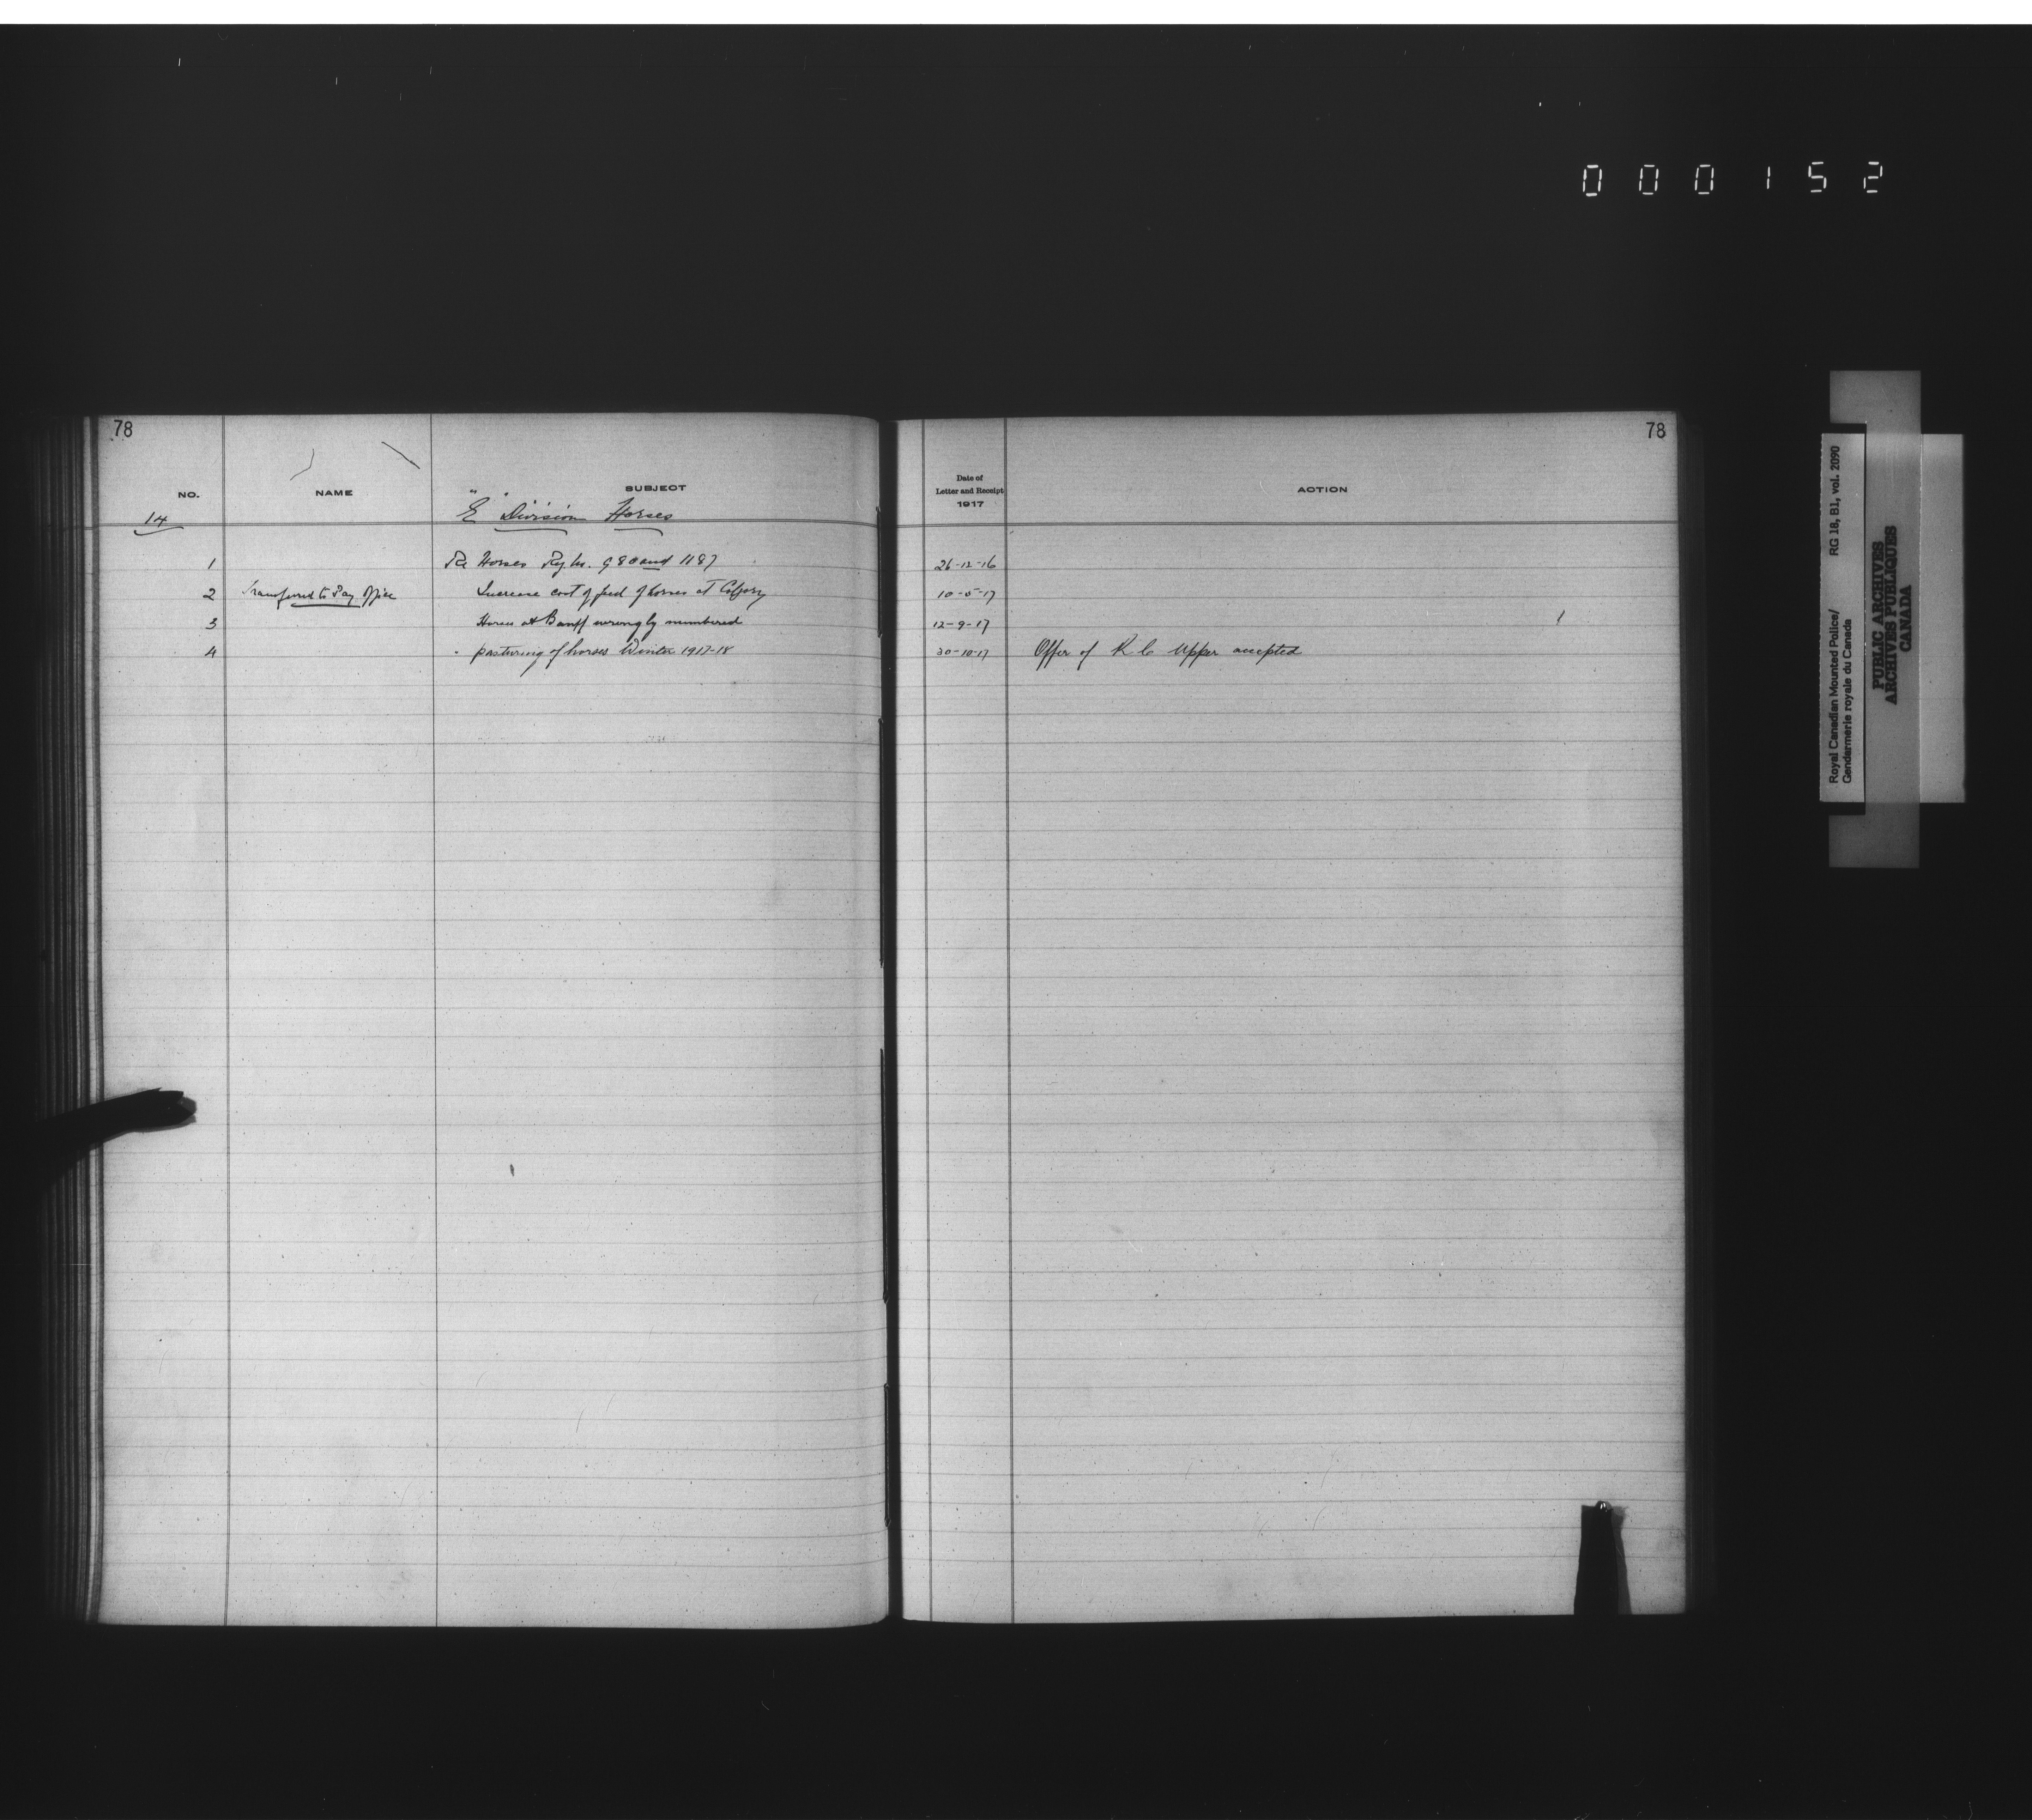 000152
78
78
NO.
NAME
SUBJECT
Date of
Letter and Receipt
1917
ACTION
14
"E" Division Horses
1 Re Horses Reg. No. 980 and 1187 26-12-16
2 Transferred to Pay Office Increase cost of feed of horses at Calgary 10-5-17
3 Horses at Banff wrongly numbered 12-9-17
4 " pasturing of horses Winter 1917-18 30-10-17 Offer of R C Upper accepted
Royal Canadian Mounted Police/ RG 18, B1, vol. 2090
Gendarmerie royale du Canada
PUBLIC ARCHIVES
ARCHIVES PUBLIQUES
CANADA